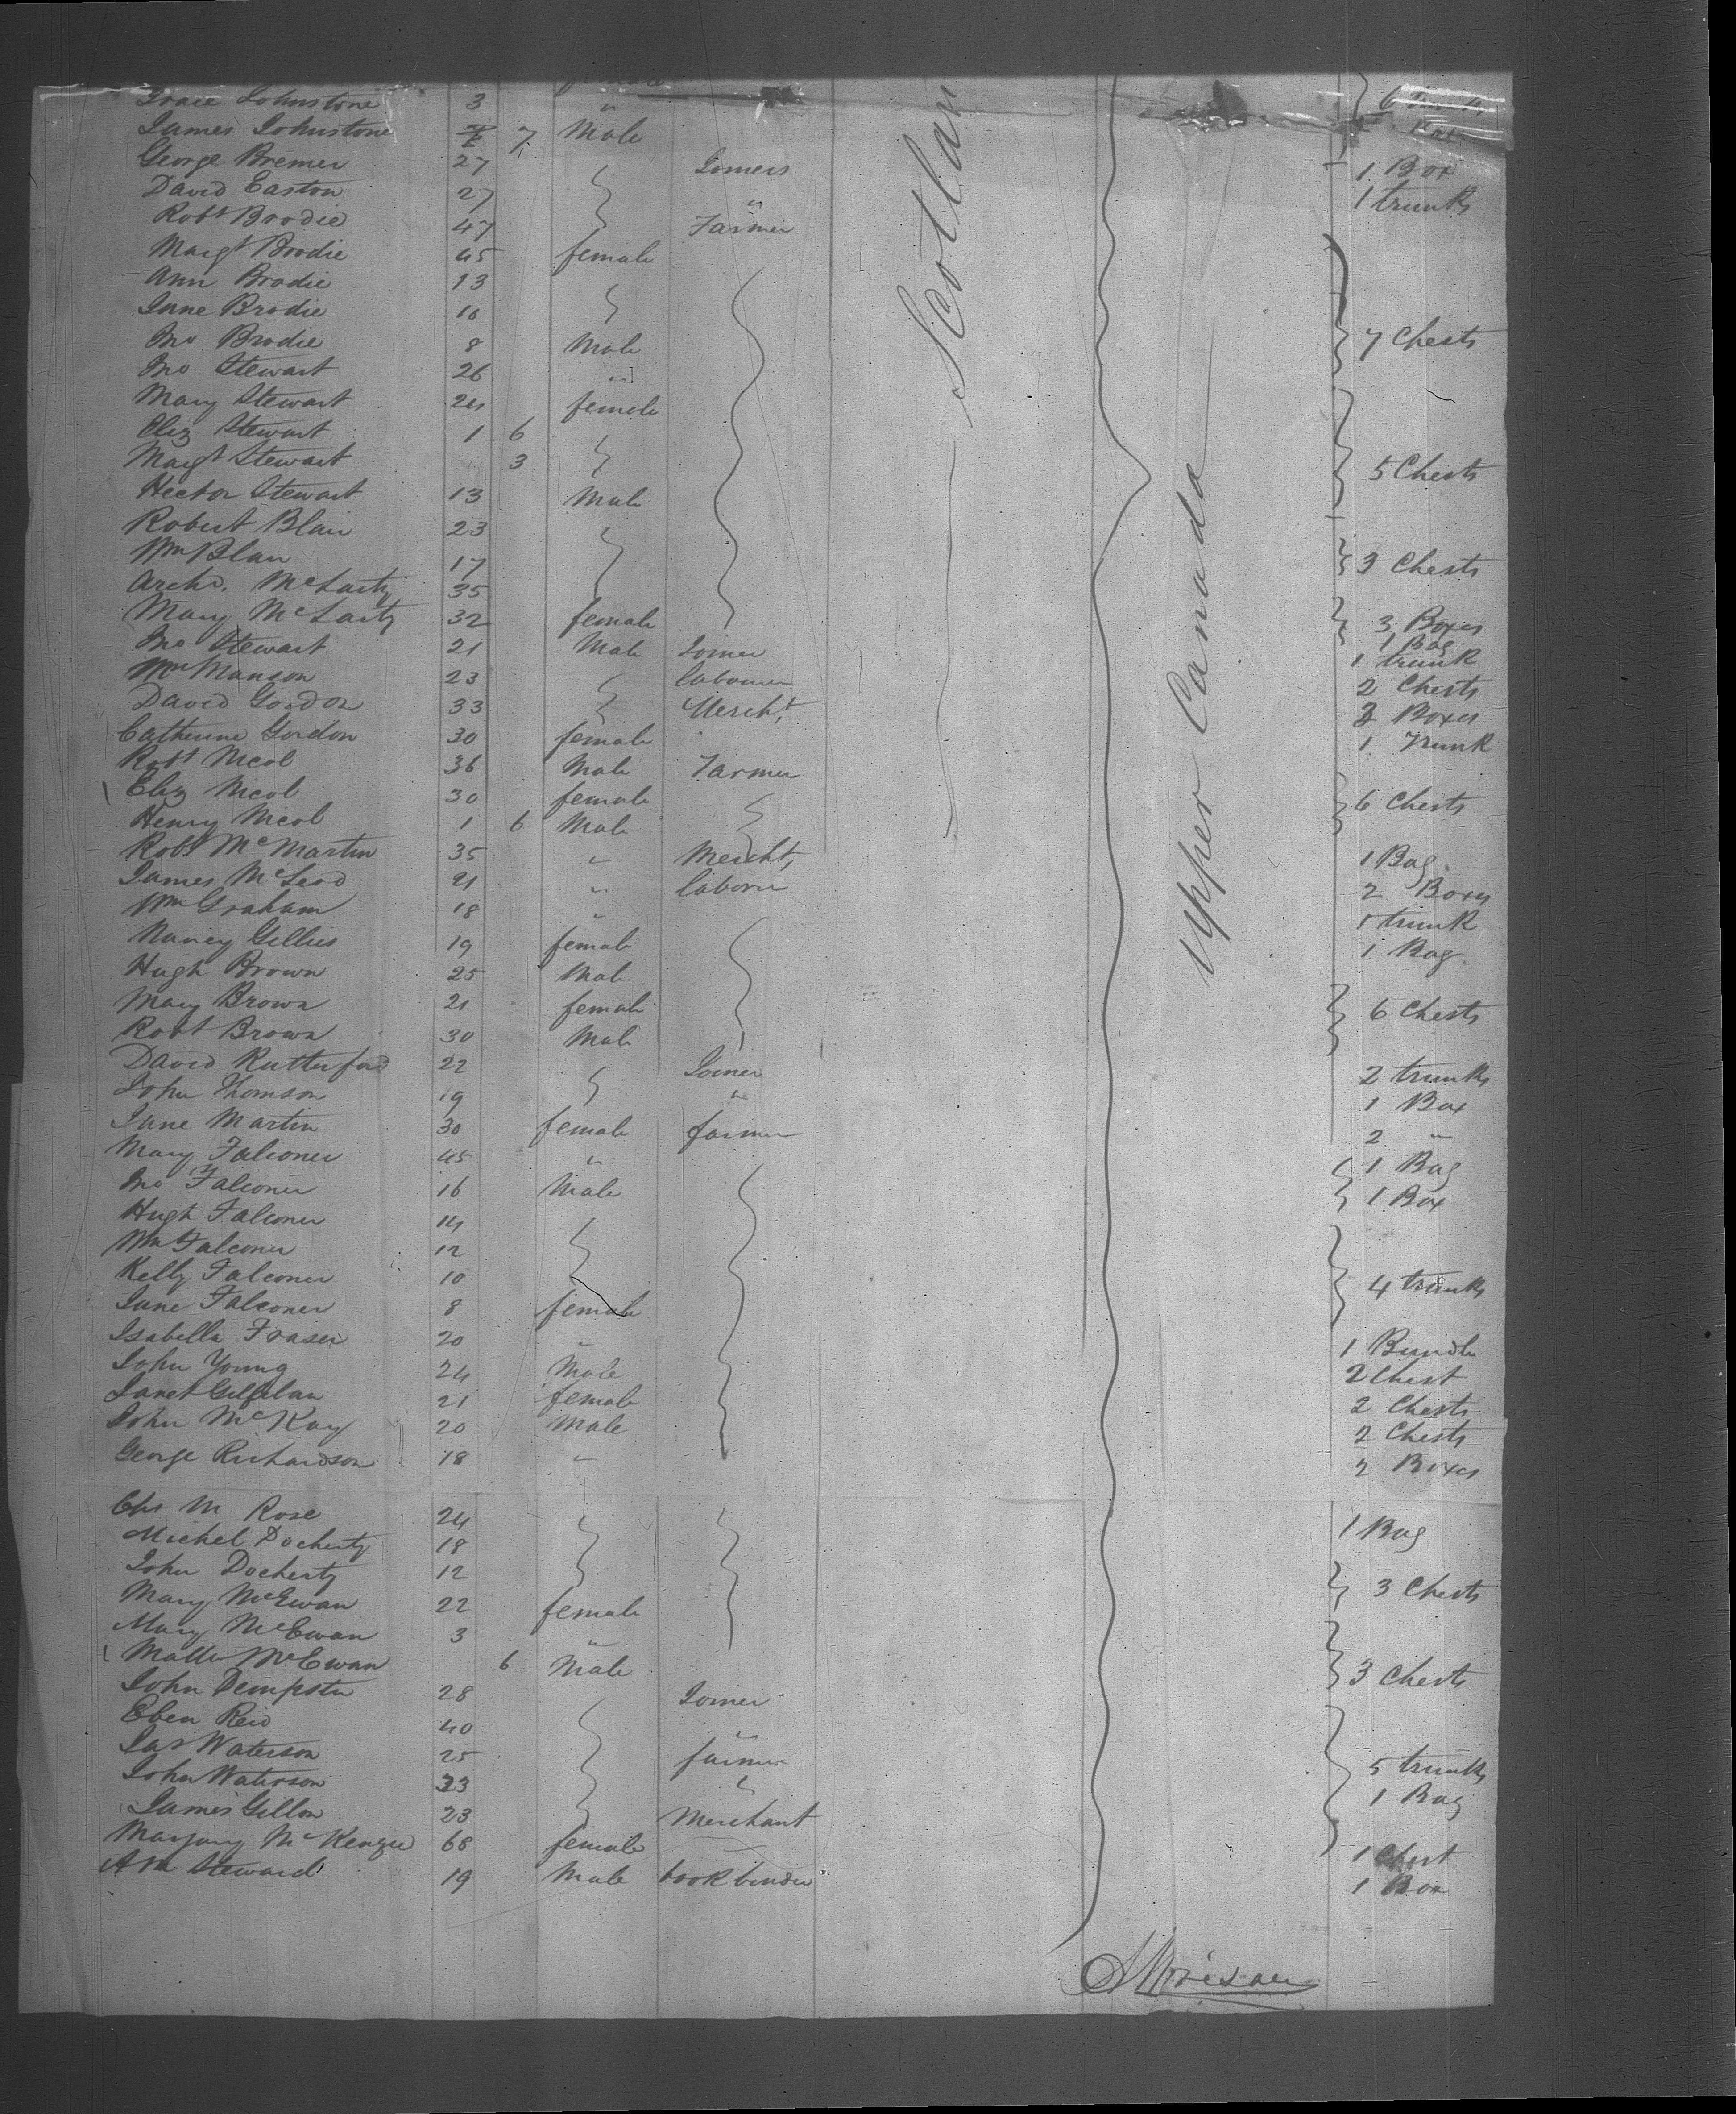 Grace Johnstone 3 " 6 Trunks
James Johnstone 7 Male
George Bremer 27 Joiners 1 Box
David Easton 27 " 1 trunk
Robt Brodie 47 Farmer
Margt Brodie 45 female
Ann Brodie 13
Jane Brodie 10
Jno Brodie 8 Male 7 Chests
Jno Stewart 26 "
Mary Stewart 24 female
Eliz Stewart 1 6
Margt Stewart 3 5 Chests
Hector Stewart 13 Male
Robert Blair 23
Wm Blair 17 3 Chests
Archd. McLarty 35
Mary McLarty 32 female 3 Boxes
1 Bag
Jno Stewart 21 Male Joiner 1 trunk
Wm Manson 23 labourer 2 Chests
David Gordon 33 Mercht 3 Boxes
Catherine Gordon 30 female 1 Trunk
Robt Nicol 36 Male Farmer
Eliz Nicol 30 female 6 Chests
Henry Nicol 1 6 Male
Robt McMartin 35 " Mercht, 1 Bag
James McLeod 21 " laborer 2 Boxes
Wm Graham 18 " 1 trunk
Nancy Gillies 19 female 1 Bag
Hugh Brown 25 Male
Mary Brown 21 female 6 Chests
Robt Brown 30 Male
David Rutterford 22 Joiner 2 trunks
John Thomson 19 " 1 Box
Jane Martin 30 female farmer 2 "
Mary Falconer 45 " 1 Bag
Jno Falconer 16 Male 1 Box
Hugh Falconer 14
Wm Falconer 12
Kelly Falconer 10 4 trunks
Jane Falconer 8 female
Isabella Fraser 20 " 1 Bundle
John Young 24 Male 2 Chest
Janet Gilfilan 21 female 2 Chests
John McKay 20 Male 2 Chests
George Richardson 18 " 2 Boxes
Chs M Rose 24 1 Bag
Michel Docherty 18
John Docherty 12 3 Chests
Mary McEwan 22 female
Mary McEwan 3 "
McEwan 6 Male 3 Chests
John Dempster 28 Joiner
Eben Reid 40 "
Jas Waterson 25 farmer 5 trunks
John Waterson 23 " 1 Bag
James Gillon 23 Merchant
Marjany McKenzie 68 female 1 Chest
Steward 19 Male book binder 1 Box
Scotlan
Upper Canada
Morison